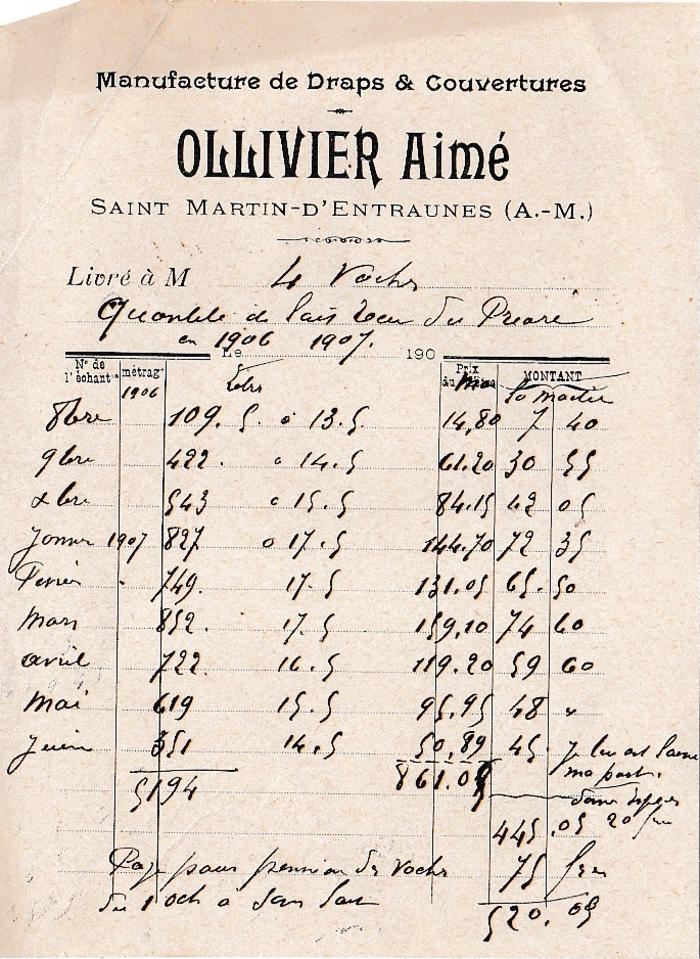 Manufacture de Draps & Couvertures
OLLIVIER Aimé
SAINT MARTIN-D'ENTRAUNES (A.-M.)
Livré à M 4 Vaches
Quantité de lait du
en 1906 1907.
Le 190
N° de l'échant métrag Prix du MONTANT
1906 Litres la moitié
8bre 109. 5. à 13.5. 14,80 7 40
9bre 422. à 14.5 61.20 30 55
xbre 543 à 15.5 84.15 42 05
Janvier 1907 827 à 17.5 144.70 72 35
Février 749. 17.5 131.05 65.50
Mars 852. 17.5 159,10 74 60
avril 722 16.5 119.20 59 60
Mai 619 15.5 95.95 48 "
Juin 351 14.5 50,89 45. je
ma part.
5194 861.09
445.05 20
Payé pour pension des vaches 75
du 1 à 520.05